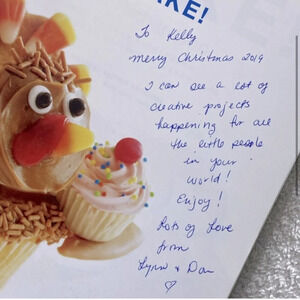 KE!
To Kelly
merry Christmas 2019
I can see a lot of
creative projects
happening for all
the little people
in your
world!
Enjoy!
Lots of Love
from
Lynn & Dan